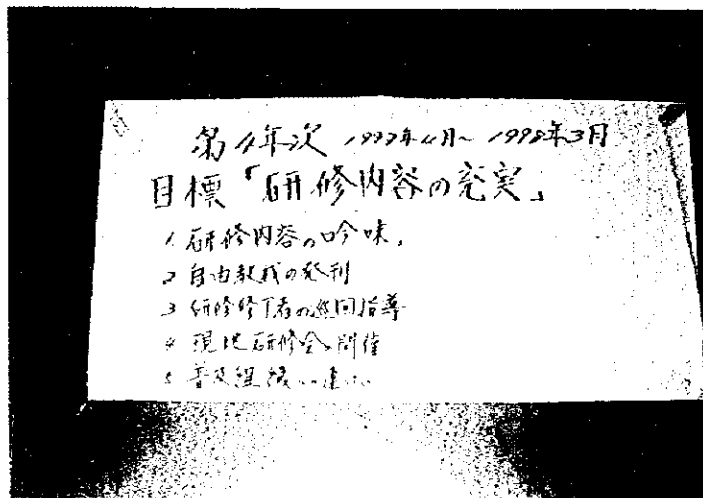 第4年次 1997年4月～1998年3月
目標「研修内容の充実」
1 研修内容の吟味
2 自由教我の発刊
3 研修修了者の巡回指導
4 現地研修会の開催
5 普及組織